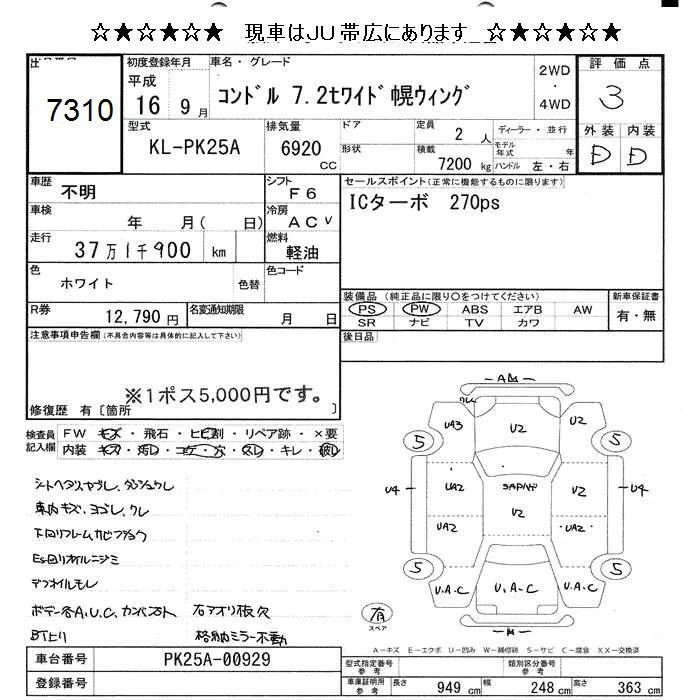 ☆★☆★☆★ 現車はJU帯広にあります ☆★☆★☆★
初度登録年月 車名・グレード 評価点
7310 平成 16 9月 コンドル 7.2tワイド幌ウィング 2WD ・ 4WD 3
型式 KL-PK25A 排気量 6920 CC ドア 形状 定員 2 人 積載 7200 kg ディーラー・並行 モデル年式 年 ハンドル 左・右 外装 内装 D D
車歴 不明 シフト F6 セールスポイント(正常に機能するものに限ります)
車検 年 月( 日) 冷房 AC ICターボ 270ps
走行 37万1千900 km 燃料 軽油
色 ホワイト 色替 色コード
R券 12,790 円 名変通知期限 月 日 装備品(純正品に限り○をつけてください) 新車保証書
PS PW ABS エアB AW 有・無
SR ナビ TV カワ
注意事項申告欄(不具合内容等は具体的に記入して下さい) 後日品
※1ポス5,000円です。
修復歴 有〔箇所 〕
検査員記入欄 FW キズ・飛石・ヒビ割・リペア跡・×要
内装 キズ・汚レ・コゲ・穴・スレ・キレ・破レ
シートヘタリ,ヤブレ,ダッシュクレ
車内キズ、ヨゴレ,クレ
下回リフレームカビフショク
Eg回リオイルニジミ
デフオイルモレ
ボデー各A,U,C,カンバスント 右アオリ板欠
BTヒリ 格納ミラー不動
A
クレ
UA3 U2 U2
5 5
U4 UA2 SAPハゲ U2 U4
UA2 U2 UA2
5 5
U.A.C U.A.C U.A.C
有 スペア
A－キズ E－エクボ U－凹み W－補修跡 S－サビ C－腐食 XX－交換済
車台番号 PK25A-00929 型式指定番号 参考 類別区分番号 参考
登録番号 車庫証明用 参考 長さ 949 cm 幅 248 cm 高さ 363 cm